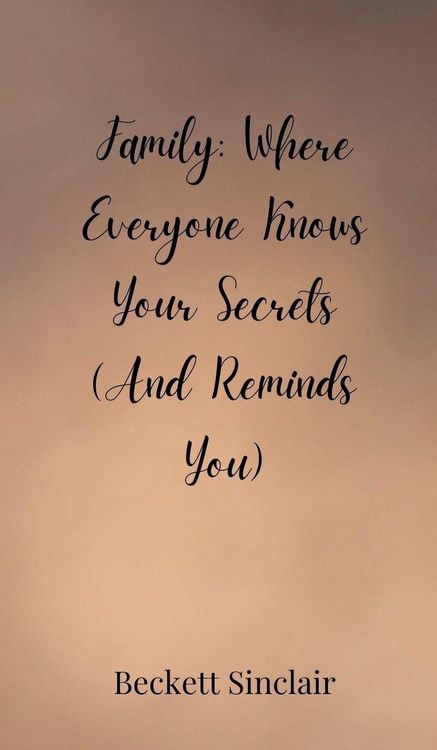 Family: Where
Everyone Knows
Your Secrets
(And Reminds
You)
Beckett Sinclair